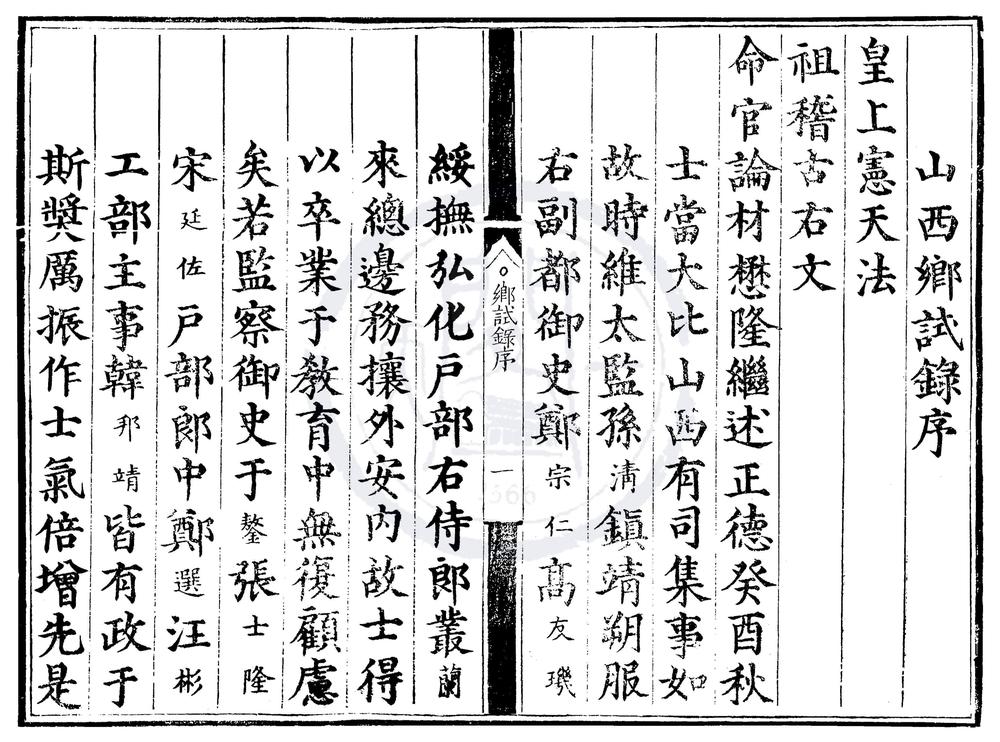 山西鄉試錄序
皇上憲天法
祖稽古右文
命官論材懋隆繼述正德癸酉秋
士當大比山西有司集事如
故時維太監孫清鎮靖朔服
右副都御史鄭宗仁高友璣
鄉試錄序 一
綏撫弘化戶部右侍郎叢蘭
來總邊務攘外安內故士得
以卒業于教育中無復顧慮
矣若監察御史于鏊張士隆
宋廷佐戶部郎中鄭選汪彬
工部主事韓邦靖皆有政于
斯奬厲振作士氣倍增先是